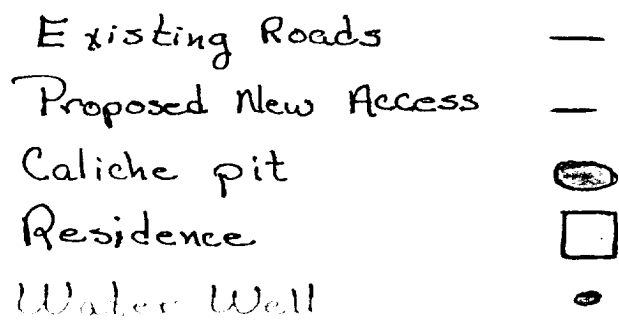 Existing Roads
Proposed New Access
Caliche pit
Residence
Water Well